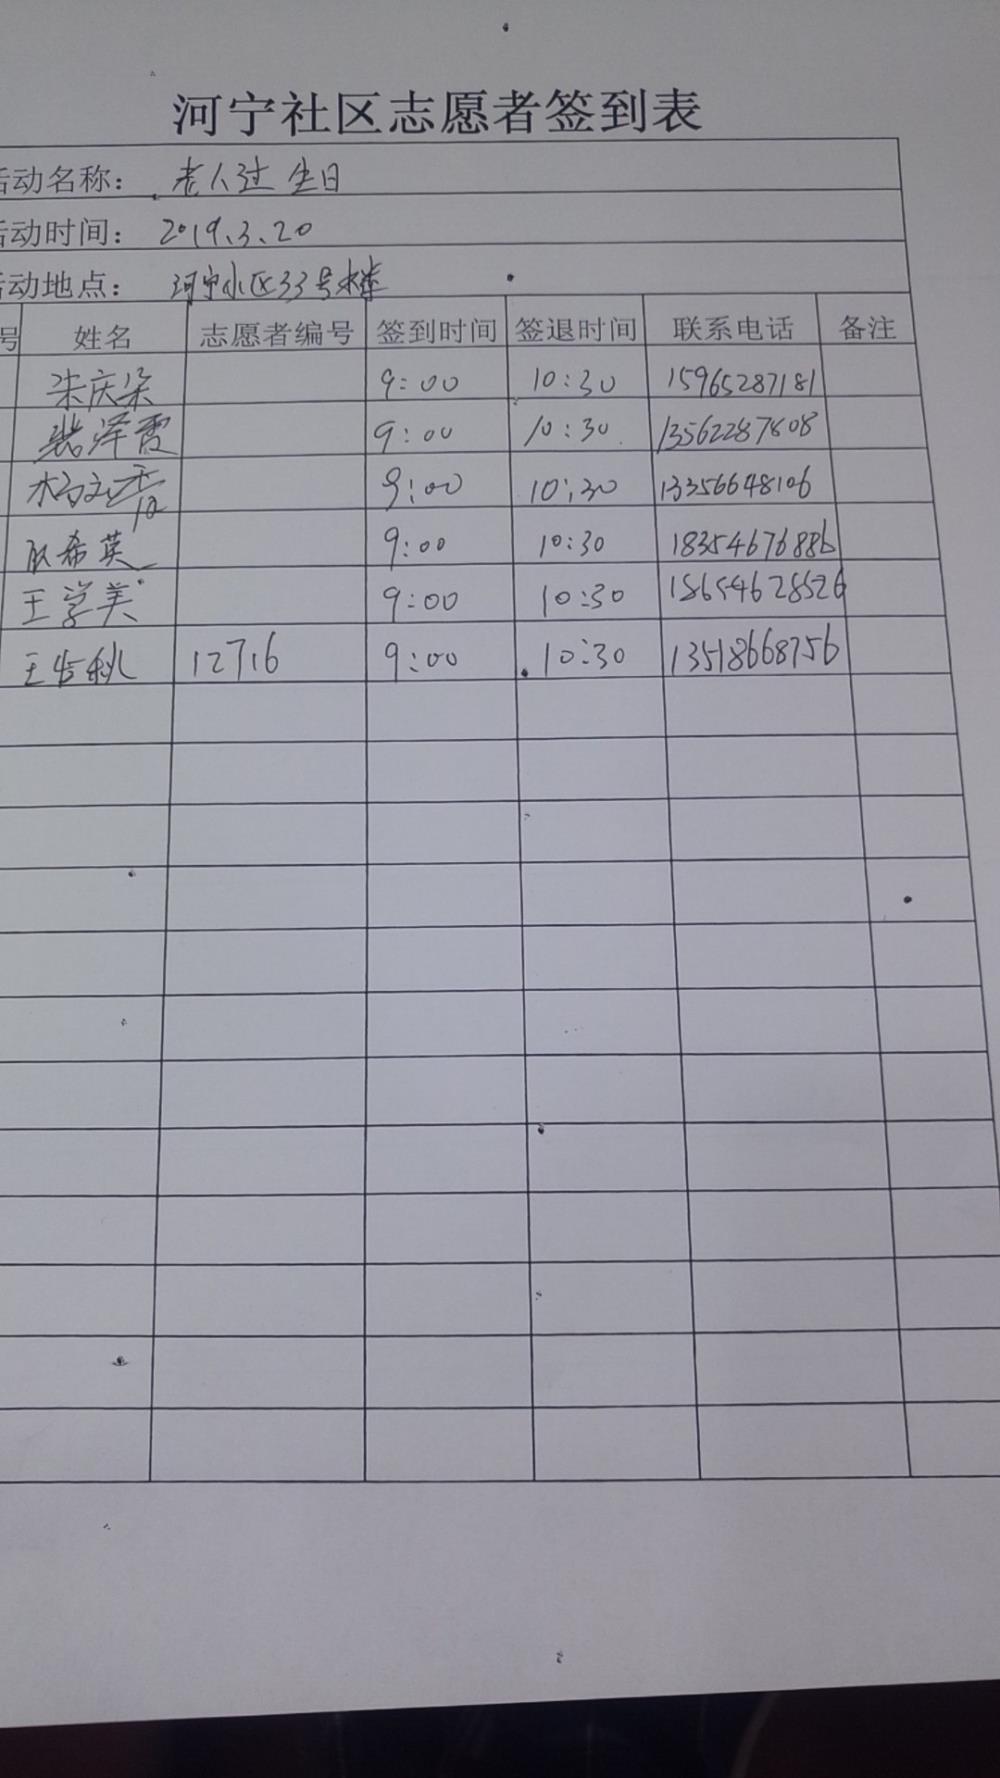 河宁社区志愿者签到表
活动名称： 老人过生日
活动时间： 2019.3.20
活动地点： 河宁小区33号楼
号 姓名 志愿者编号 签到时间 签退时间 联系电话 备注
朱庆朵 9:00 10:30 15965287181
裴泽霞 9:00 10:30 13562287808
杨文香 9:00 10:30 13356648106
耿希英 9:00 10:30 18354676886
王学美 9:00 10:30 18654628526
王 秋 12716 9:00 10:30 13518668756